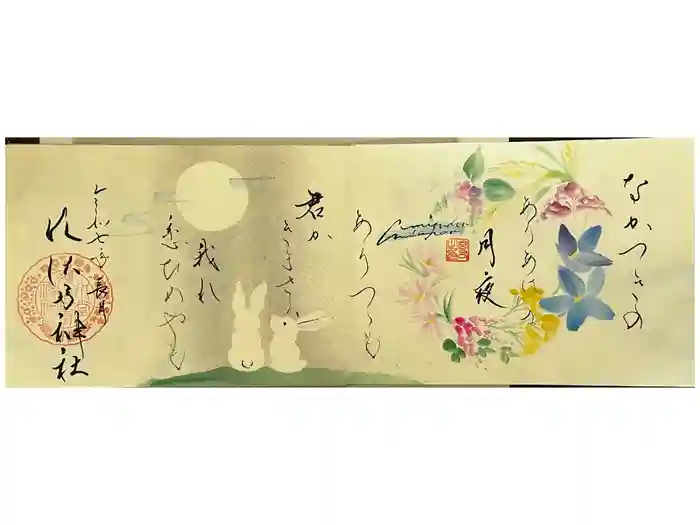 なかつきの
ありあけの
月夜
ありつゝも
君か
きまさは
我れ
恋ひめやも
令和七年 長月
神社